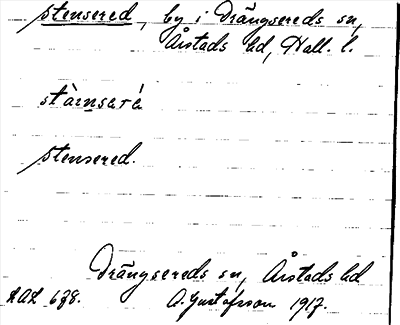 Stensered, by i Drängsereds sn,
Årstads hd, Hall. l.
stàinsarè
Stensered.
Drängsereds sn, Årstads hd
AAL 678. A. Gustafsson 1917.